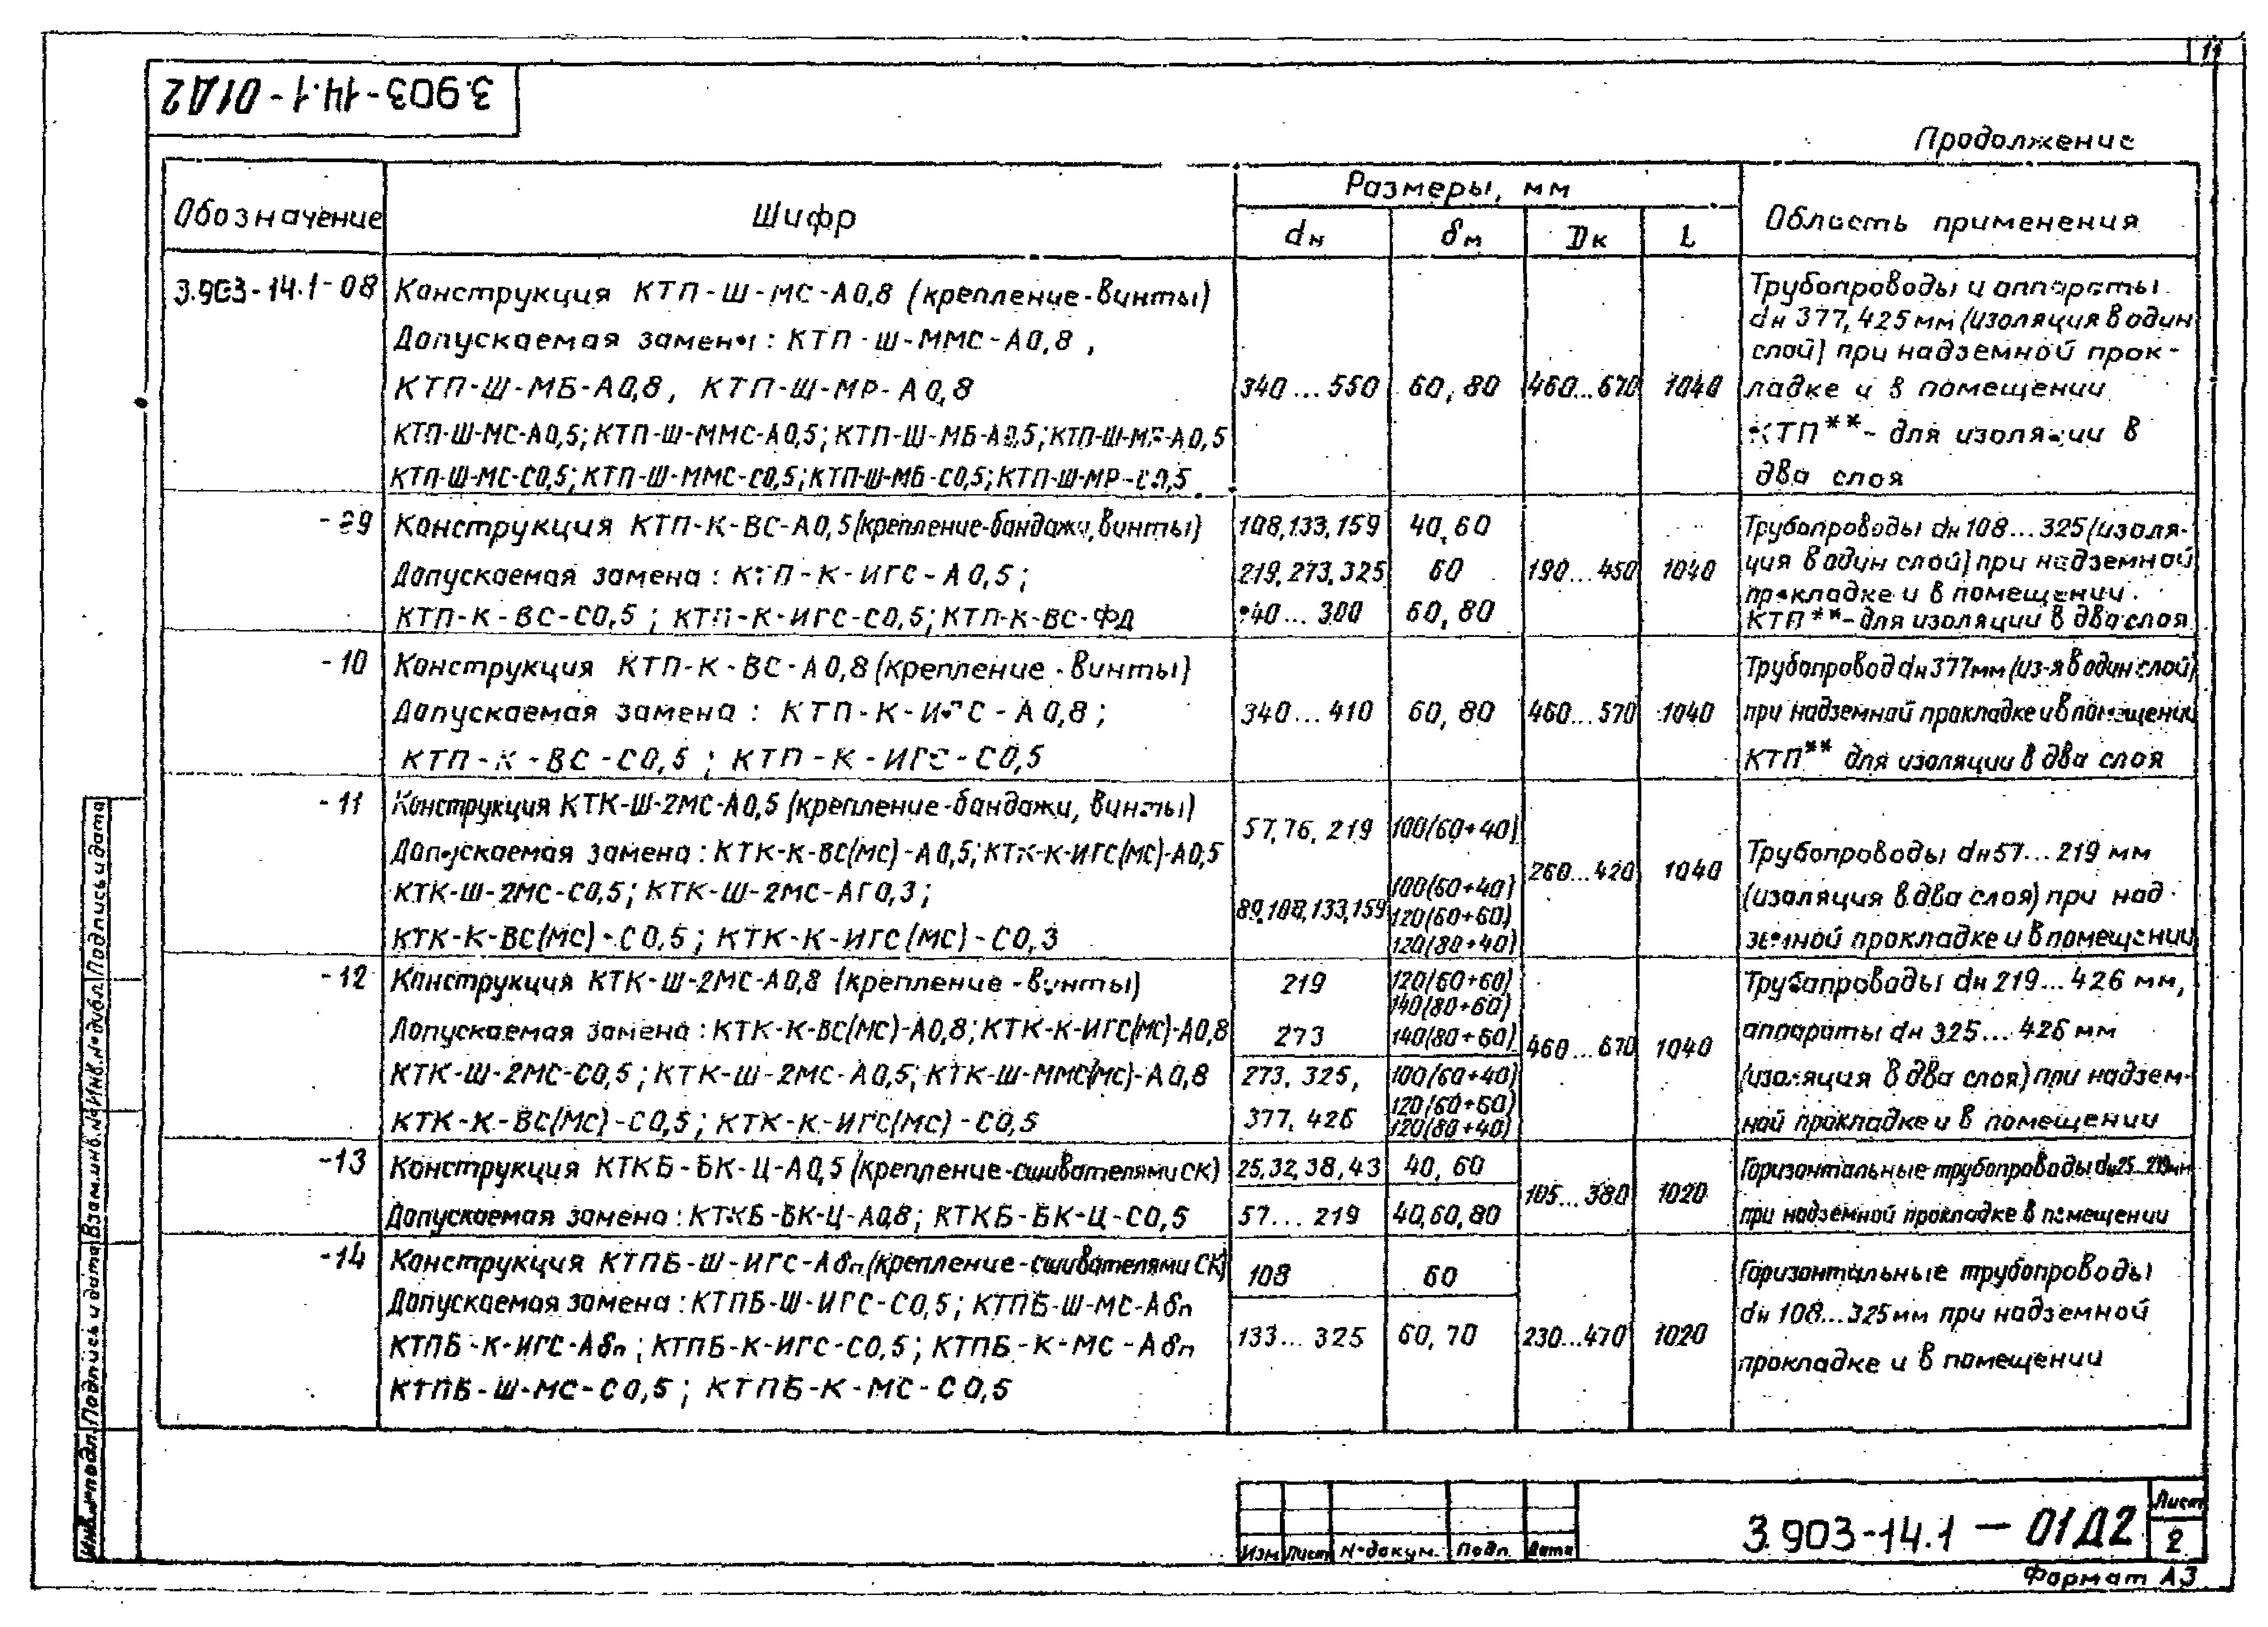 11
3.903-14.1-01Д2
Продолжение
Обозначение
Шифр
Размеры, мм
Область применения
dн
δм
Dк
L
3.903-14.1-08
Конструкция КТП-Ш-МС-А0,8 (крепление-винты)
Допускаемая замены: КТП-Ш-ММС-А0,8,
КТП-Ш-МБ-А0,8, КТП-Ш-МР-А0,8
КТП-Ш-МС-А0,5; КТП-Ш-ММС-А0,5; КТП-Ш-МБ-А0,5; КТП-Ш-МР-А0,5
КТП-Ш-МС-С0,5; КТП-Ш-ММС-С0,5; КТП-Ш-МБ-С0,5; КТП-Ш-МР-С0,5
340...550
60, 80
460...670
1040
Трубопроводы и аппараты
dн 377, 425 мм (изоляция в один
слой) при надземной прок-
ладке и в помещении
КТП**- для изоляции в
два слоя
-09
Конструкция КТП-К-ВС-А0,5 (крепление-бандажи, винты)
Допускаемая замена: КТП-К-ИГС-А0,5;
КТП-К-ВС-С0,5; КТП-К-ИГС-С0,5; КТП-К-ВС-ФД
108, 133, 159
40, 60
219, 273, 325
60
40...300
60, 80
190...450
1040
Трубопроводы dн 108...325 (изоля-
ция в один слой) при надземной
прокладке и в помещении.
КТП**-для изоляции в два слоя
-10
Конструкция КТП-К-ВС-А0,8 (крепление-винты)
Допускаемая замена: КТП-К-ИГС-А0,8;
КТП-К-ВС-С0,5; КТП-К-ИГС-С0,5
340...410
60, 80
460...570
1040
Трубопровод dн 377мм (из-я в один слой)
при надземной прокладке и в помещении
КТП** для изоляции в два слоя
-11
Конструкция КТК-Ш-2МС-А0,5 (крепление-бандажи, винты)
Допускаемая замена: КТК-К-ВС(МС)-А0,5; КТК-К-ИГС(МС)-А0,5
КТК-Ш-2МС-С0,5; КТК-Ш-2МС-АГ0,3;
КТК-К-ВС(МС)-С0,5; КТК-К-ИГС(МС)-С0,3
57, 76, 219
100(60+40)
89, 108, 133, 159
100(60+40)
120(60+60)
120(80+40)
260...420
1040
Трубопроводы dн 57...219 мм
(изоляция в два слоя) при над-
земной прокладке и в помещении
-12
Конструкция КТК-Ш-2МС-А0,8 (крепление-винты)
Допускаемая замена: КТК-К-ВС(МС)-А0,8; КТК-К-ИГС(МС)-А0,8
КТК-Ш-2МС-С0,5; КТК-Ш-2МС-А0,5; КТК-Ш-ММС(МС)-А0,8
КТК-К-ВС(МС)-С0,5; КТК-К-ИГС(МС)-С0,5
219
120(60+60)
140(80+60)
273
140(80+60)
273, 325,
377, 426
100(60+40)
120(60+60)
120(80+40)
460...670
1040
Трубопроводы dн 219...426 мм,
аппараты dн 325...426 мм
(изоляция в два слоя) при надзем-
ной прокладке и в помещении
-13
Конструкция КТКБ-БК-Ц-А0,5 (крепление-сшивателями СК)
Допускаемая замена: КТКБ-БК-Ц-А0,8; КТКБ-БК-Ц-С0,5
25, 32, 38, 43
40, 60
57...219
40, 60, 80
105...380
1020
Горизонтальные трубопроводы dн 25...219мм
при надземной прокладке в помещении
-14
Конструкция КТПБ-Ш-ИГС-Абп (крепление-сшивателями СК)
Допускаемая замена: КТПБ-Ш-ИГС-С0,5; КТПБ-Ш-МС-Абп
КТПБ-К-ИГС-Абп; КТПБ-К-ИГС-С0,5; КТПБ-К-МС-Абп
КТПБ-Ш-МС-С0,5; КТПБ-К-МС-С0,5
108
60
133...325
60, 70
230...470
1020
Горизонтальные трубопроводы
dн 108...325мм при надземной
прокладке и в помещении
Инв.№подл. Подпись и дата Взам.инв.№ Инв.№дубл. Подпись и дата
Изм Лист №докум. Подп. Дата
3.903-14.1-01Д2
Лист
2
Формат А3